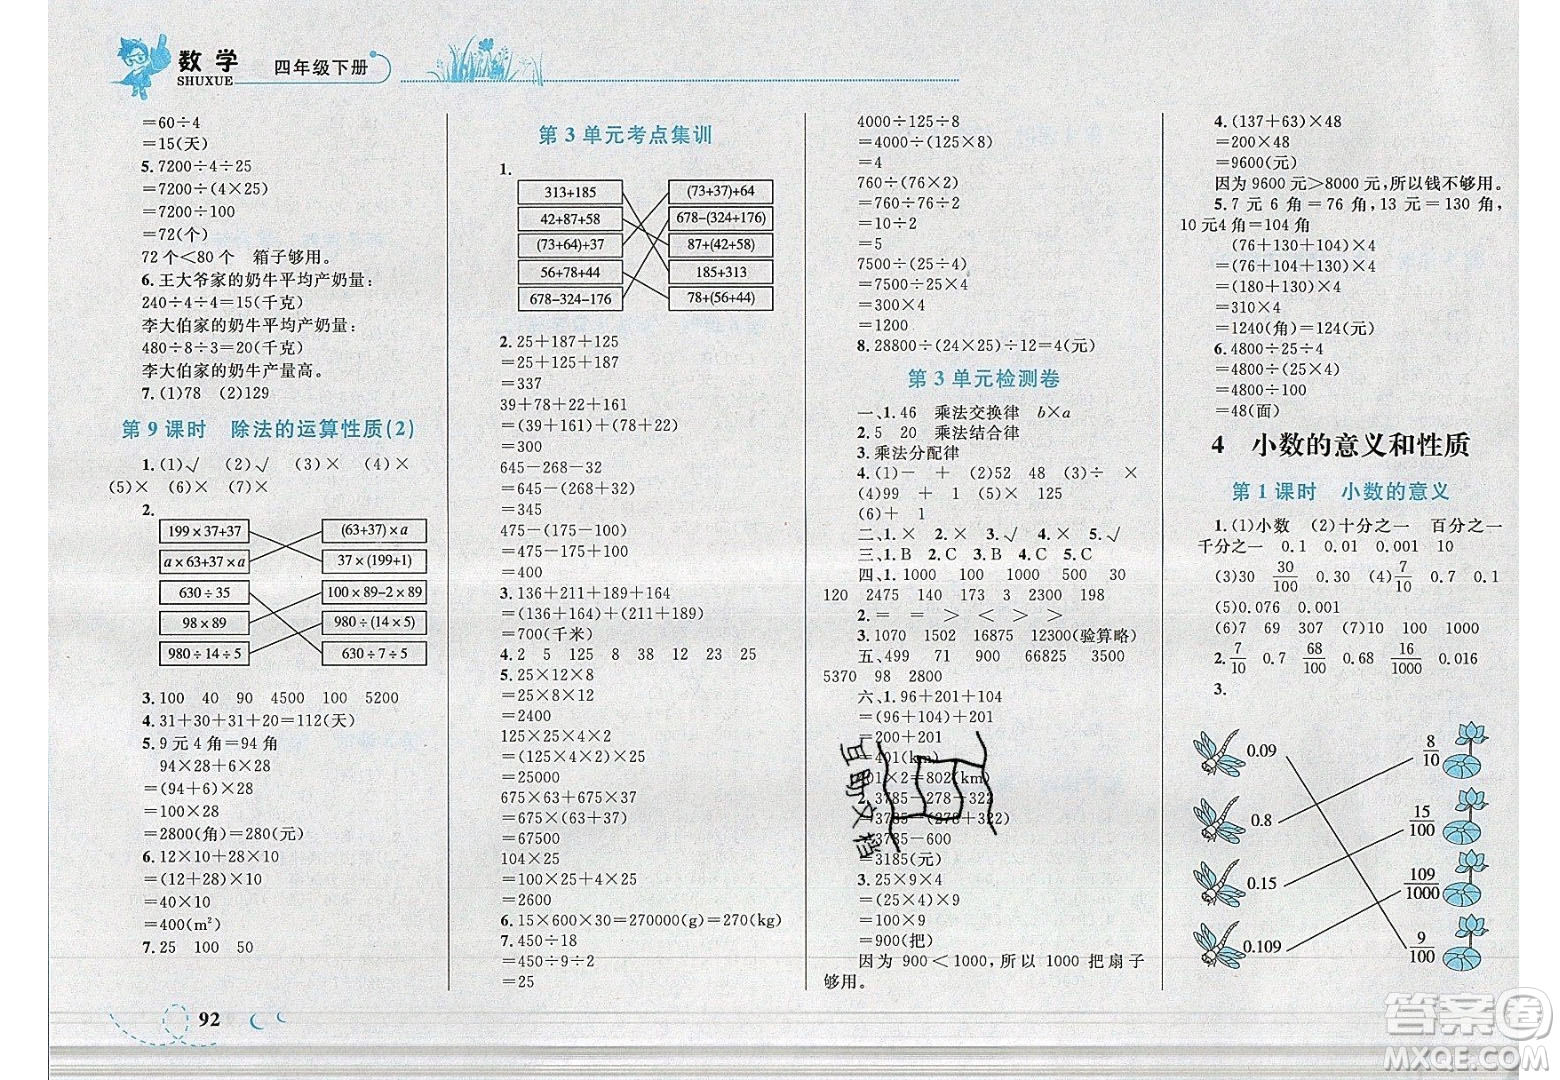 数学
SHUXUE
四年级下册
=60÷4
=15(天)
5. 7200÷4÷25
=7200÷(4×25)
=7200÷100
=72(个)
72 个<80 个 箱子够用。
6. 王大爷家的奶牛平均产奶量:
240÷4÷4=15(千克)
李大伯家的奶牛平均产奶量:
480÷8÷3=20(千克)
李大伯家的奶牛产量高。
7. (1)78 (2)129
第 9 课时 除法的运算性质(2)
1. (1)√ (2)√ (3)× (4)×
(5)× (6)× (7)×
2.
199×37+37 (63+37)×a
a×63+37×a 37×(199+1)
630÷35 100×89-2×89
98×89 980÷(14×5)
980÷14÷5 630÷7÷5
3. 100 40 90 4500 100 5200
4. 31+30+31+20=112(天)
5. 9 元 4 角=94 角
94×28+6×28
=(94+6)×28
=100×28
=2800(角)=280(元)
6. 12×10+28×10
=(12+28)×10
=40×10
=400(m²)
7. 25 100 50
第 3 单元考点集训
1.
313+185 (73+37)+64
42+87+58 678-(324+176)
(73+64)+37 87+(42+58)
56+78+44 185+313
678-324-176 78+(56+44)
2. 25+187+125
=25+125+187
=337
39+78+22+161
=(39+161)+(78+22)
=300
645-268-32
=645-(268+32)
=345
475-(175-100)
=475-175+100
=400
3. 136+211+189+164
=(136+164)+(211+189)
=700(千米)
4. 2 5 125 8 38 12 23 25
5. 25×12×8
=25×8×12
=2400
125×25×4×2
=(125×4×2)×25
=25000
675×63+675×37
=675×(63+37)
=67500
104×25
=100×25+4×25
=2600
6. 15×600×30=270000(g)=270(kg)
7. 450÷18
=450÷9÷2
=25
4000÷125÷8
=4000÷(125×8)
=4
760÷(76×2)
=760÷76÷2
=10÷2
=5
7500÷(25÷4)
=7500÷25×4
=300×4
=1200
8. 28800÷(24×25)÷12=4(元)
第 3 单元检测卷
一、1. 46 乘法交换律 b×a
2. 5 20 乘法结合律
3. 乘法分配律
4. (1)- + (2)52 48 (3)÷ ×
(4)99 + 1 (5)× 125
(6)+ 1
二、1. × 2. × 3. √ 4. × 5. √
三、1. B 2. C 3. B 4. C 5. B
四、1. 1000 100 1000 500 30
120 2475 140 173 3 2300 198
2. = = > < > >
3. 1070 1502 16875 12300(验算略)
五、499 71 900 66825 3500
5370 98 2800
六、1. 96+201+104
=(96+104)+201
=200+201
=401(km)
401×2=802(km)
2. 3785-278-322
=3785-(278+322)
=3785-600
=3185(元)
3. 25×9×4
=(25×4)×9
=100×9
=900(把)
因为 900<1000,所以 1000 把扇子
够用。
互助文档
4. (137+63)×48
=200×48
=9600(元)
因为 9600 元>8000 元,所以钱不够用。
5. 7 元 6 角=76 角,13 元=130 角,
10 元4 角=104 角
(76+130+104)×4
=(76+104+130)×4
=(180+130)×4
=310×4
=1240(角)=124(元)
6. 4800÷25÷4
=4800÷(25×4)
=4800÷100
=48(面)
4 小数的意义和性质
第 1 课时 小数的意义
1. (1)小数 (2)十分之一 百分之一
千分之一 0.1 0.01 0.001 10
(3)30 30/100 0.30 (4)7/10 0.7 0.1
(5)0.076 0.001
(6)7 69 307 (7)10 100 1000
2. 7/10 0.7 68/100 0.68 16/1000 0.016
3.
0.09 8/10
0.8 15/100
0.15 109/1000
0.109 9/100
92
答案圈
MXQE.COM